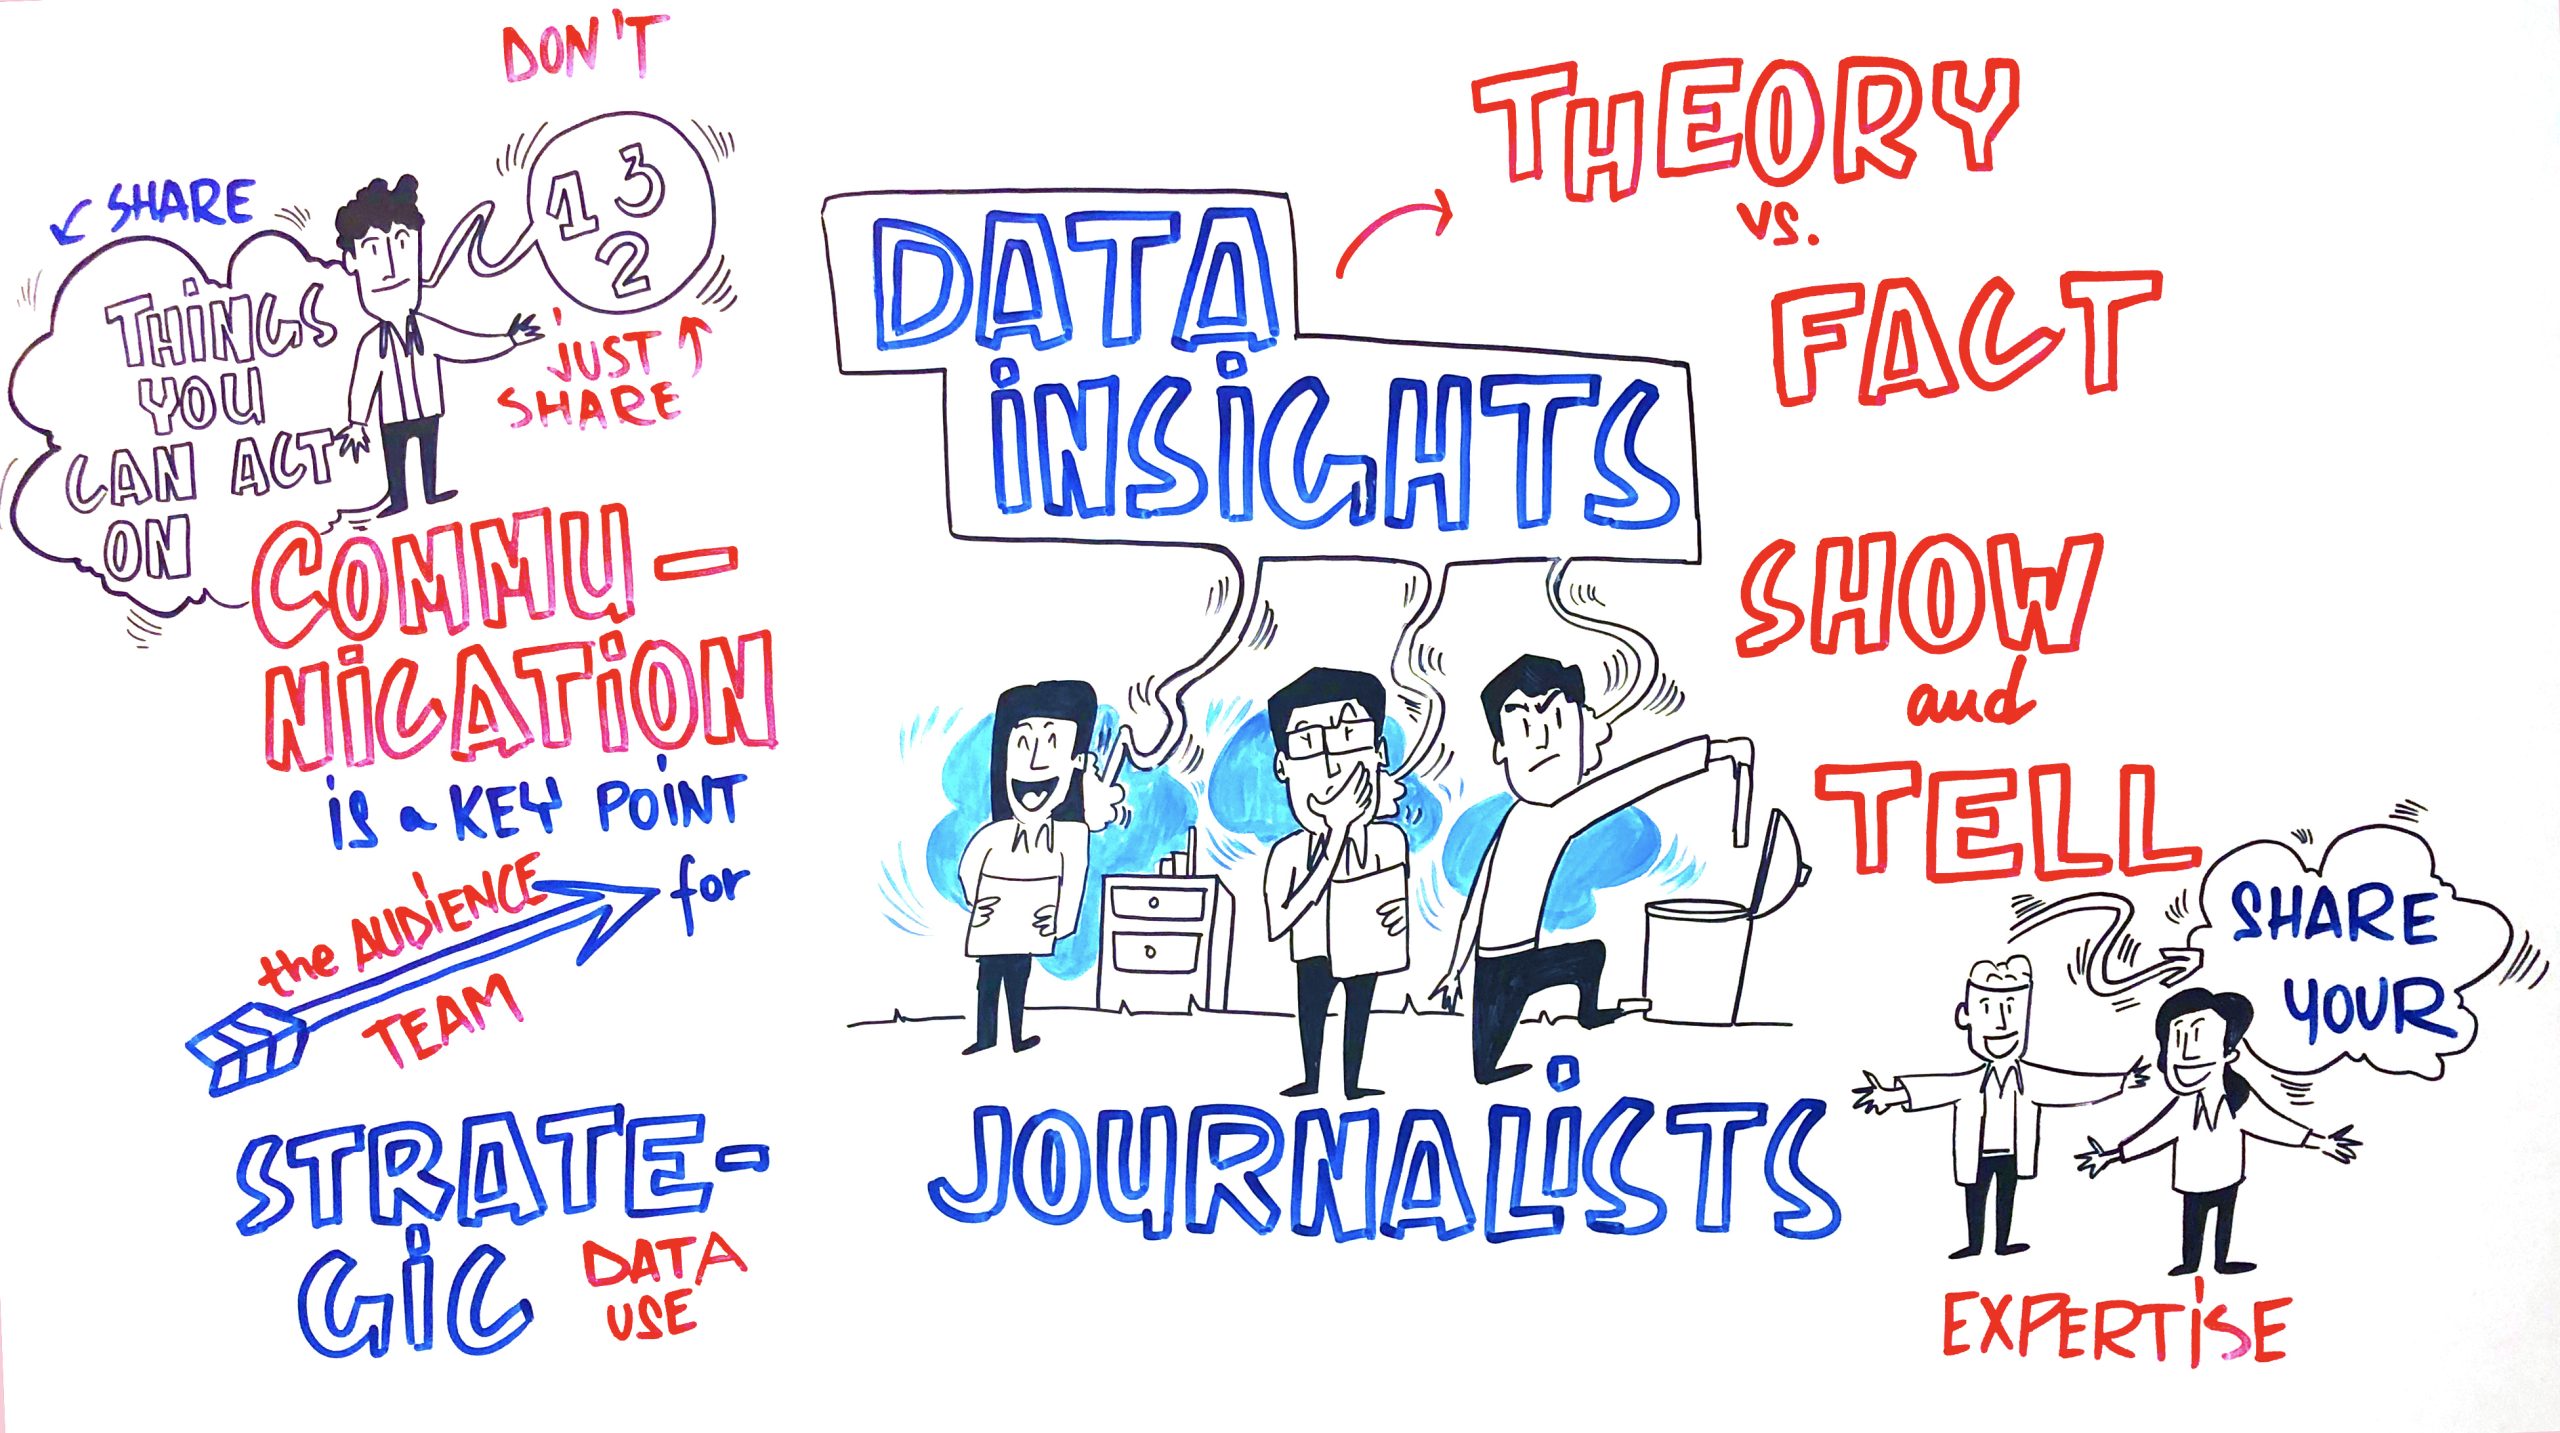 DON'T
1 3
2
JUST
SHARE
SHARE
THiNGS
YOU
CAN ACT
ON
COMMU-
NiCATiON
is a KEY POiNT
for
the AUDiENCE
TEAM
STRATE-
GiC
DATA
USE
DATA
iNSiGHTS
JOURNALiSTS
THEORY
vs.
FACT
SHOW
and
TELL
SHARE
YOUR
EXPERTiSE